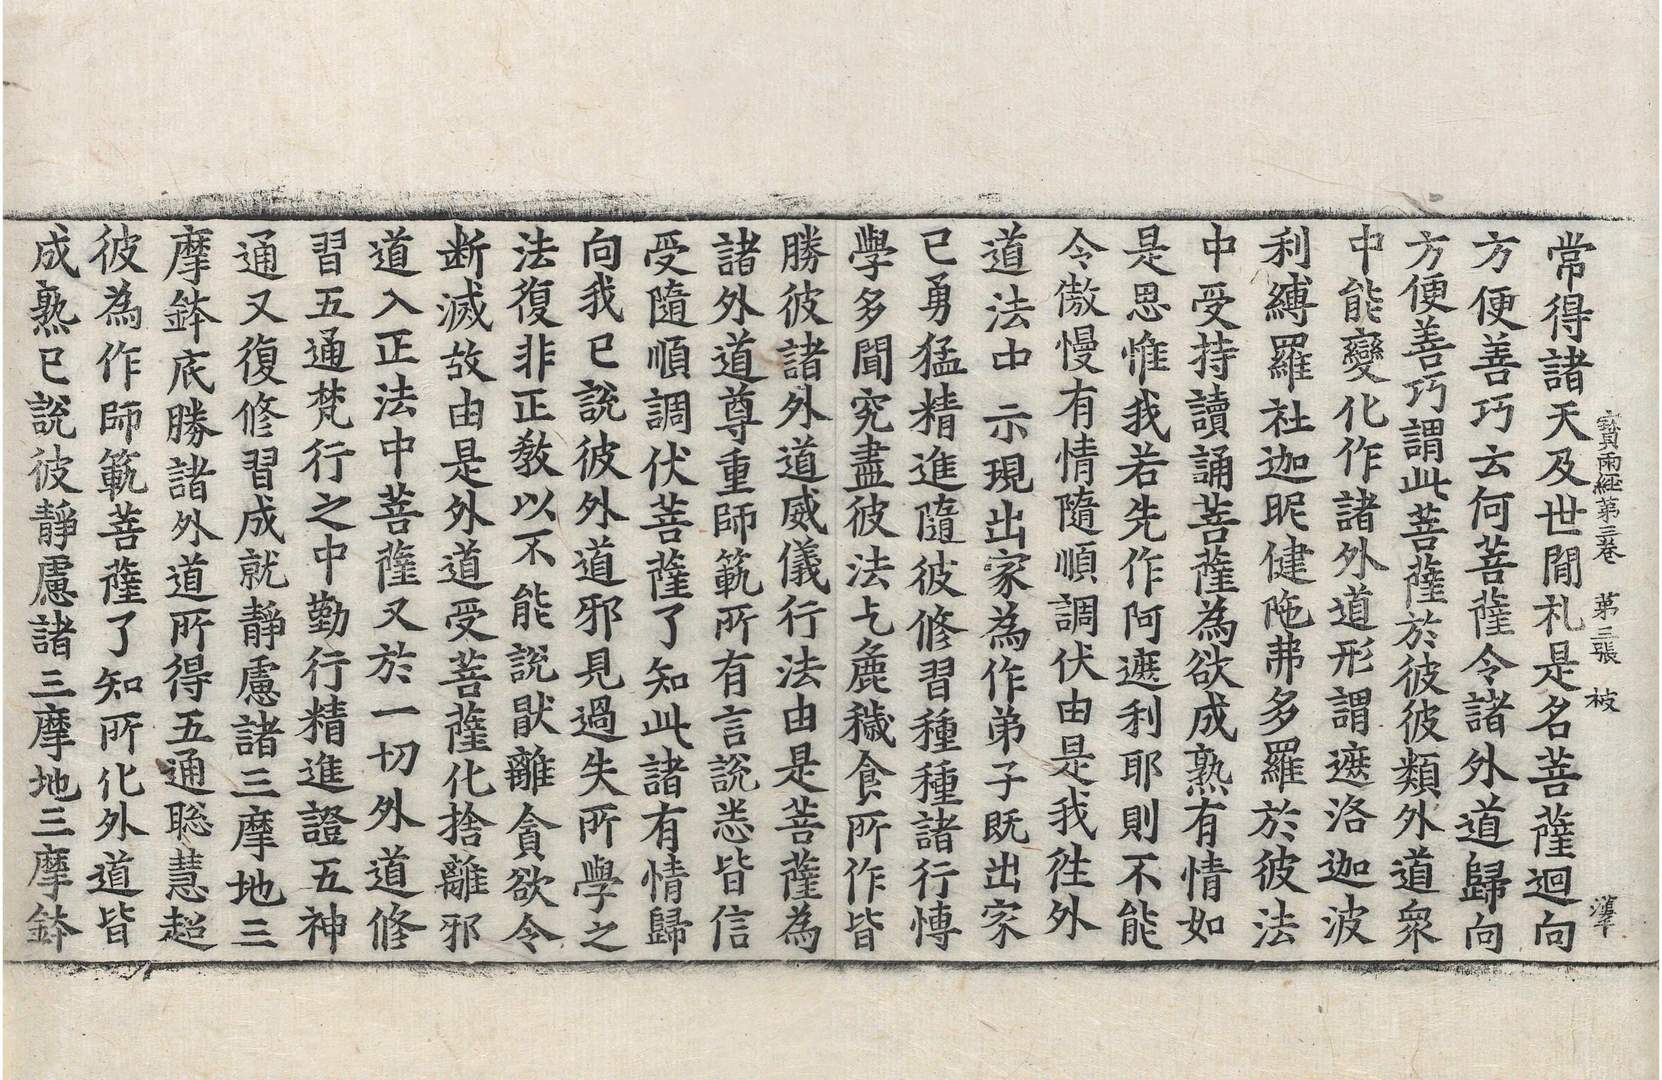 寶雨經第三卷　第三張　被
常得諸天及世間礼是名菩薩迴向
方便善巧云何菩薩令諸外道歸向
方便善巧謂此菩薩於彼彼類外道衆
中能變化作諸外道形謂遮洛迦波
利縛羅社迦昵健陁弗多羅於彼法
中受持讀誦菩薩為欲成熟有情如
是思惟我若先作阿遮利耶則不能
令憿慢有情隨順調伏由是我徃外
道法中 示現出家為作弟子既出家
已勇猛精進隨彼修習種種諸行慱
學多聞究盡彼法乞麁穢食所作皆
勝彼諸外道威儀行法由是菩薩為
諸外道尊重師範所有言說悉皆信
受隨順調伏菩薩了知此諸有情歸
向我已說彼外道邪見過失所學之
法復非正教以不能說猒離貪欲令
断滅故由是外道受菩薩化捨離邪
道入正法中菩薩又於一切外道修
習五通梵行之中勤行精進證五神
通又復修習成就靜慮諸三摩地三
摩鉢底勝諸外道所得五通聡慧超
彼為作師範菩薩了知所化外道皆
成熟已說彼靜慮諸三摩地三摩鉢